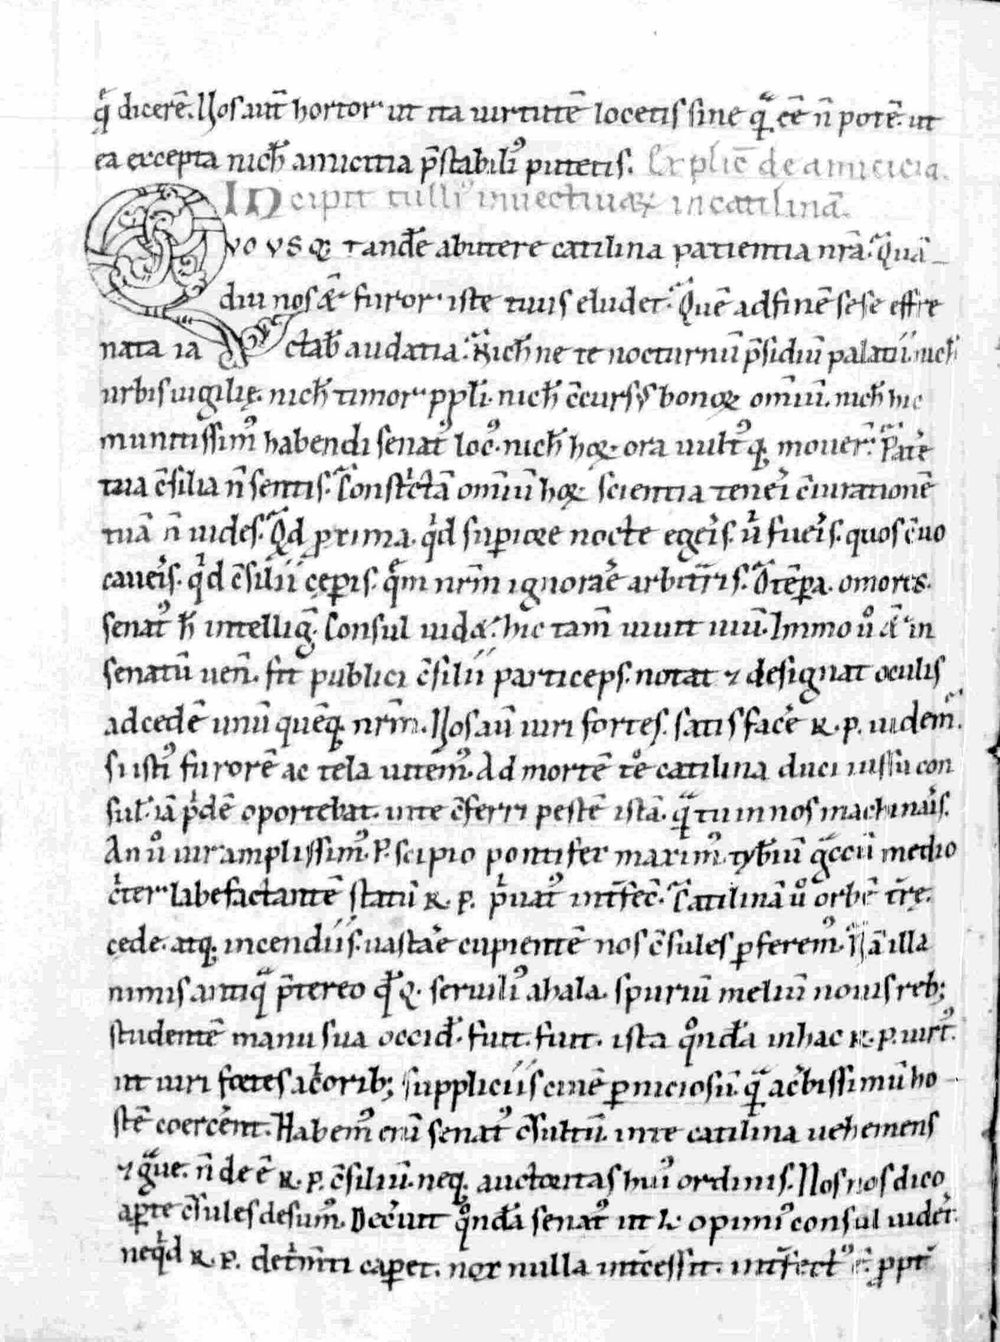 q̄ dicerē. Uos aut̄ hortor ut ita uirtutē locetis sine q̄ cē n̄ potē. ut
ea excepta nich̄ amicitia p̄stabiliꝰ putetis. Explic̄ de amicicia.
Incipit tulliꝰ inuectiuaꝝ in catilinā.
Quo usq; tandē abutere catilina patientia nr̄a. Quā
diu nos & furor iste tuus eludet. Quē ad finē sese effre
nata iactab̄ audatia. Nich̄ne te nocturnū p̄sidiū palatii. nich̄
urbis uigilię. nich̄ timor pp̄li. nich̄ c̄cursꝰ bonoꝝ omīū. nich̄ hic
munitissimꝰ habendi senatꝰ locꝰ. nich̄ hoꝝ ora uultꝰq; mouer̄. Patē
tua c̄silia n̄ sentis. Constⁱctā omīū hoꝝ scientia teneri c̄iurationē
tuā n̄ uides. Qd̄ ꝓxima. qⁱd suꝑiore nocte egerⁱs. ū fuerⁱs. quos c̄uo
cauerⁱs. qⁱd c̄silii cęꝑis. q̄m nr̄m ignorare arbitrⁱs. O tēꝑa. o mores.
senatꝰ h̄ intelliḡ. Consul uid&. hic tam̄ uiuit uiuⁱt. Immo ů & in
senatū uen̄. fit publici c̄silii particeps. notat ⁊ designat oculis
ad cedē unū quēq; nr̄m. Nos aū uiri fortes. satisfacē R. P. uidem̄.
si istiꝰ furorē ac tela uitemꝰ. Ad mortē te catilina duci iussu con
sul̄ iā pⁱdē oportebat. in te c̄ferri pestē istā. q̄ tu in nos machinarⁱs.
An ů uir amplissimꝰ P. scipio pontifex maximꝰ tyb̄iū gᵃccū medio
cⁱter labefactantē statū R. P. pⁱuatꝰ int̄fec̄. Catilinā ů orbē t̄rę.
cędе. atq; incendiis. uastarē cupientē nos c̄sules ꝑferemꝰ. Nā illa
nimis antiqᵃ p̄tereo qᵈ Q. seruiliꝰ ahala. spuriū meliū nouis reb;
studentē manu sua occid̄. fuit. fuit. ista qͦndā in hac R. P. uirtꝰ.
ut uiri fortes acⁱorib; suppliciis ciuē ꝑniciosū. qᵃ acⁱbissimū ho
stē coercⁱent. Habemꝰ enī senatꝰ c̄sultū. in te catilina uehemens
⁊ gᵃue. n̄ dе ē R. P. c̄siliū. neq; auctoritas huiꝰ ordinis. Nos nos dico
aꝑte c̄sules desumꝰ. Decⁱuit qͦndā senatꝰ ut L. opimiꝰ consul uider̄.
ne qⁱd R. P. detⁱm̄ti caꝑet. nox nulla int̄cessit. int̄fectꝰ ē. ꝓpt̄